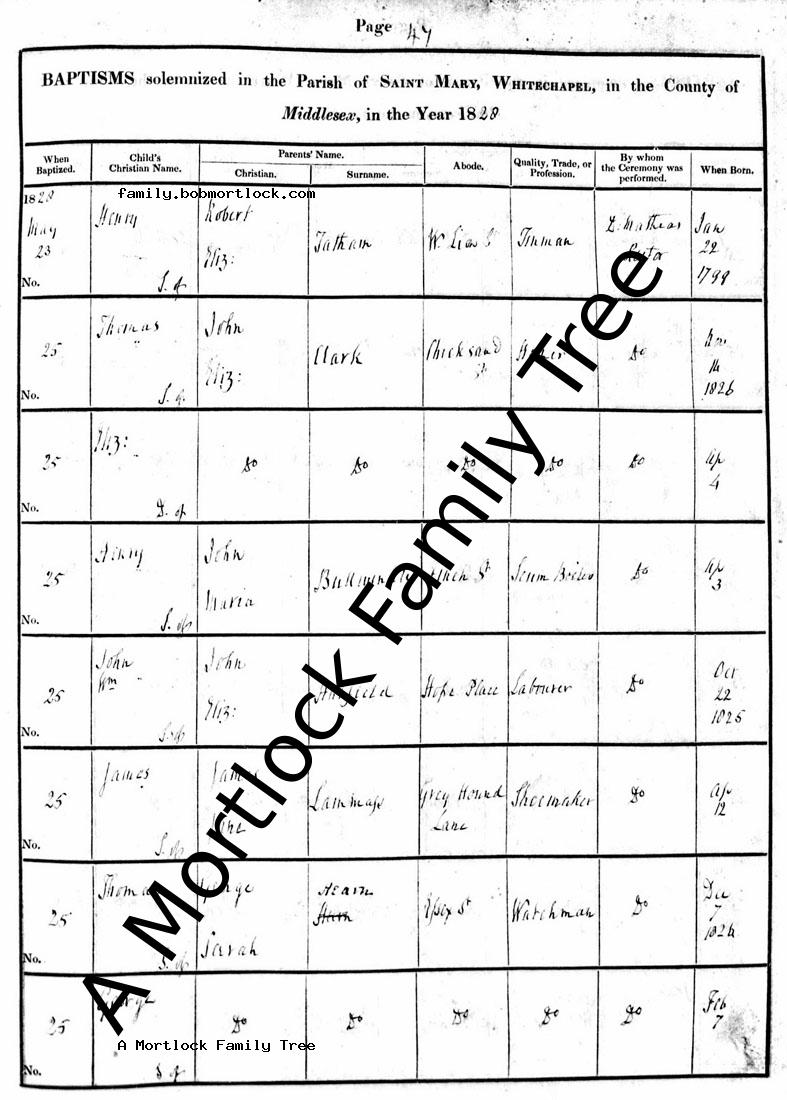 Page 47
BAPTISMS solemnized in the Parish of SAINT MARY, WHITECHAPEL, in the County of
Middlesex, in the Year 1828
When Baptized. Child's Christian Name. Parents' Name. Christian. Surname. Abode. Quality, Trade, or Profession. By whom the Ceremony was performed. When Born.
family.bobmortlock.com
1828
May 23 Henry Robert Tatham Tinman D. Mathias Jan 22
Eliz: Rector 1799
No. S. of
25 Thomas John Clark Chicksand St Do Nov 14 1826
Eliz:
No. S. of
25 Eliz: Do Do Do Do Do Ap 4
No. D. of
25 Henry John St Do Ap 3
Maria
No. S. of
25 John Wm John Hope Place Labourer Do Oct 22 1825
Eliz:
No. S. of
25 James James Lammass Grey Hound Lane Shoemaker Do Ap 12
No. S. of
25 Thomas George Hearn Essex St Watchman Do Dec 7
Sarah
No. S. of
25 George Do Do Do Do Do Feb 7
No. S of
A Mortlock Family Tree
A Mortlock Family Tree